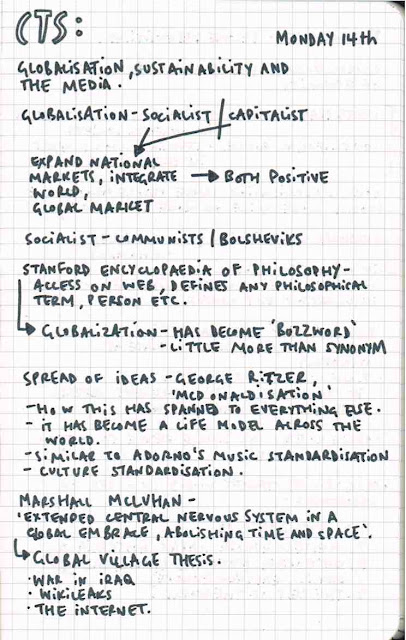 CTS:
MONDAY 14th
GLOBALISATION, SUSTAINABILITY AND
THE MEDIA.
GLOBALISATION - SOCIALIST / CAPITALIST
EXPAND NATIONAL
MARKETS, INTEGRATE → BOTH POSITIVE
WORLD,
GLOBAL MARKET
SOCIALIST - COMMUNISTS / BOLSHEVIKS
STANFORD ENCYCLOPAEDIA OF PHILOSOPHY -
ACCESS ON WEB, DEFINES ANY PHILOSOPHICAL
TERM, PERSON ETC.
GLOBALIZATION - HAS BECOME 'BUZZWORD'
- LITTLE MORE THAN SYNONYM
SPREAD OF IDEAS - GEORGE RITZER,
'MCDONALDISATION'
- HOW THIS HAS SPANNED TO EVERYTHING ELSE.
- IT HAS BECOME A LIFE MODEL ACROSS THE
WORLD.
- SIMILAR TO ADORNO'S MUSIC STANDARDISATION
- CULTURE STANDARDISATION.
MARSHALL MCLUHAN -
'EXTENDED CENTRAL NERVOUS SYSTEM IN A
GLOBAL EMBRACE, ABOLISHING TIME AND SPACE'.
GLOBAL VILLAGE THESIS.
· WAR IN IRAQ
· WIKILEAKS
· THE INTERNET.